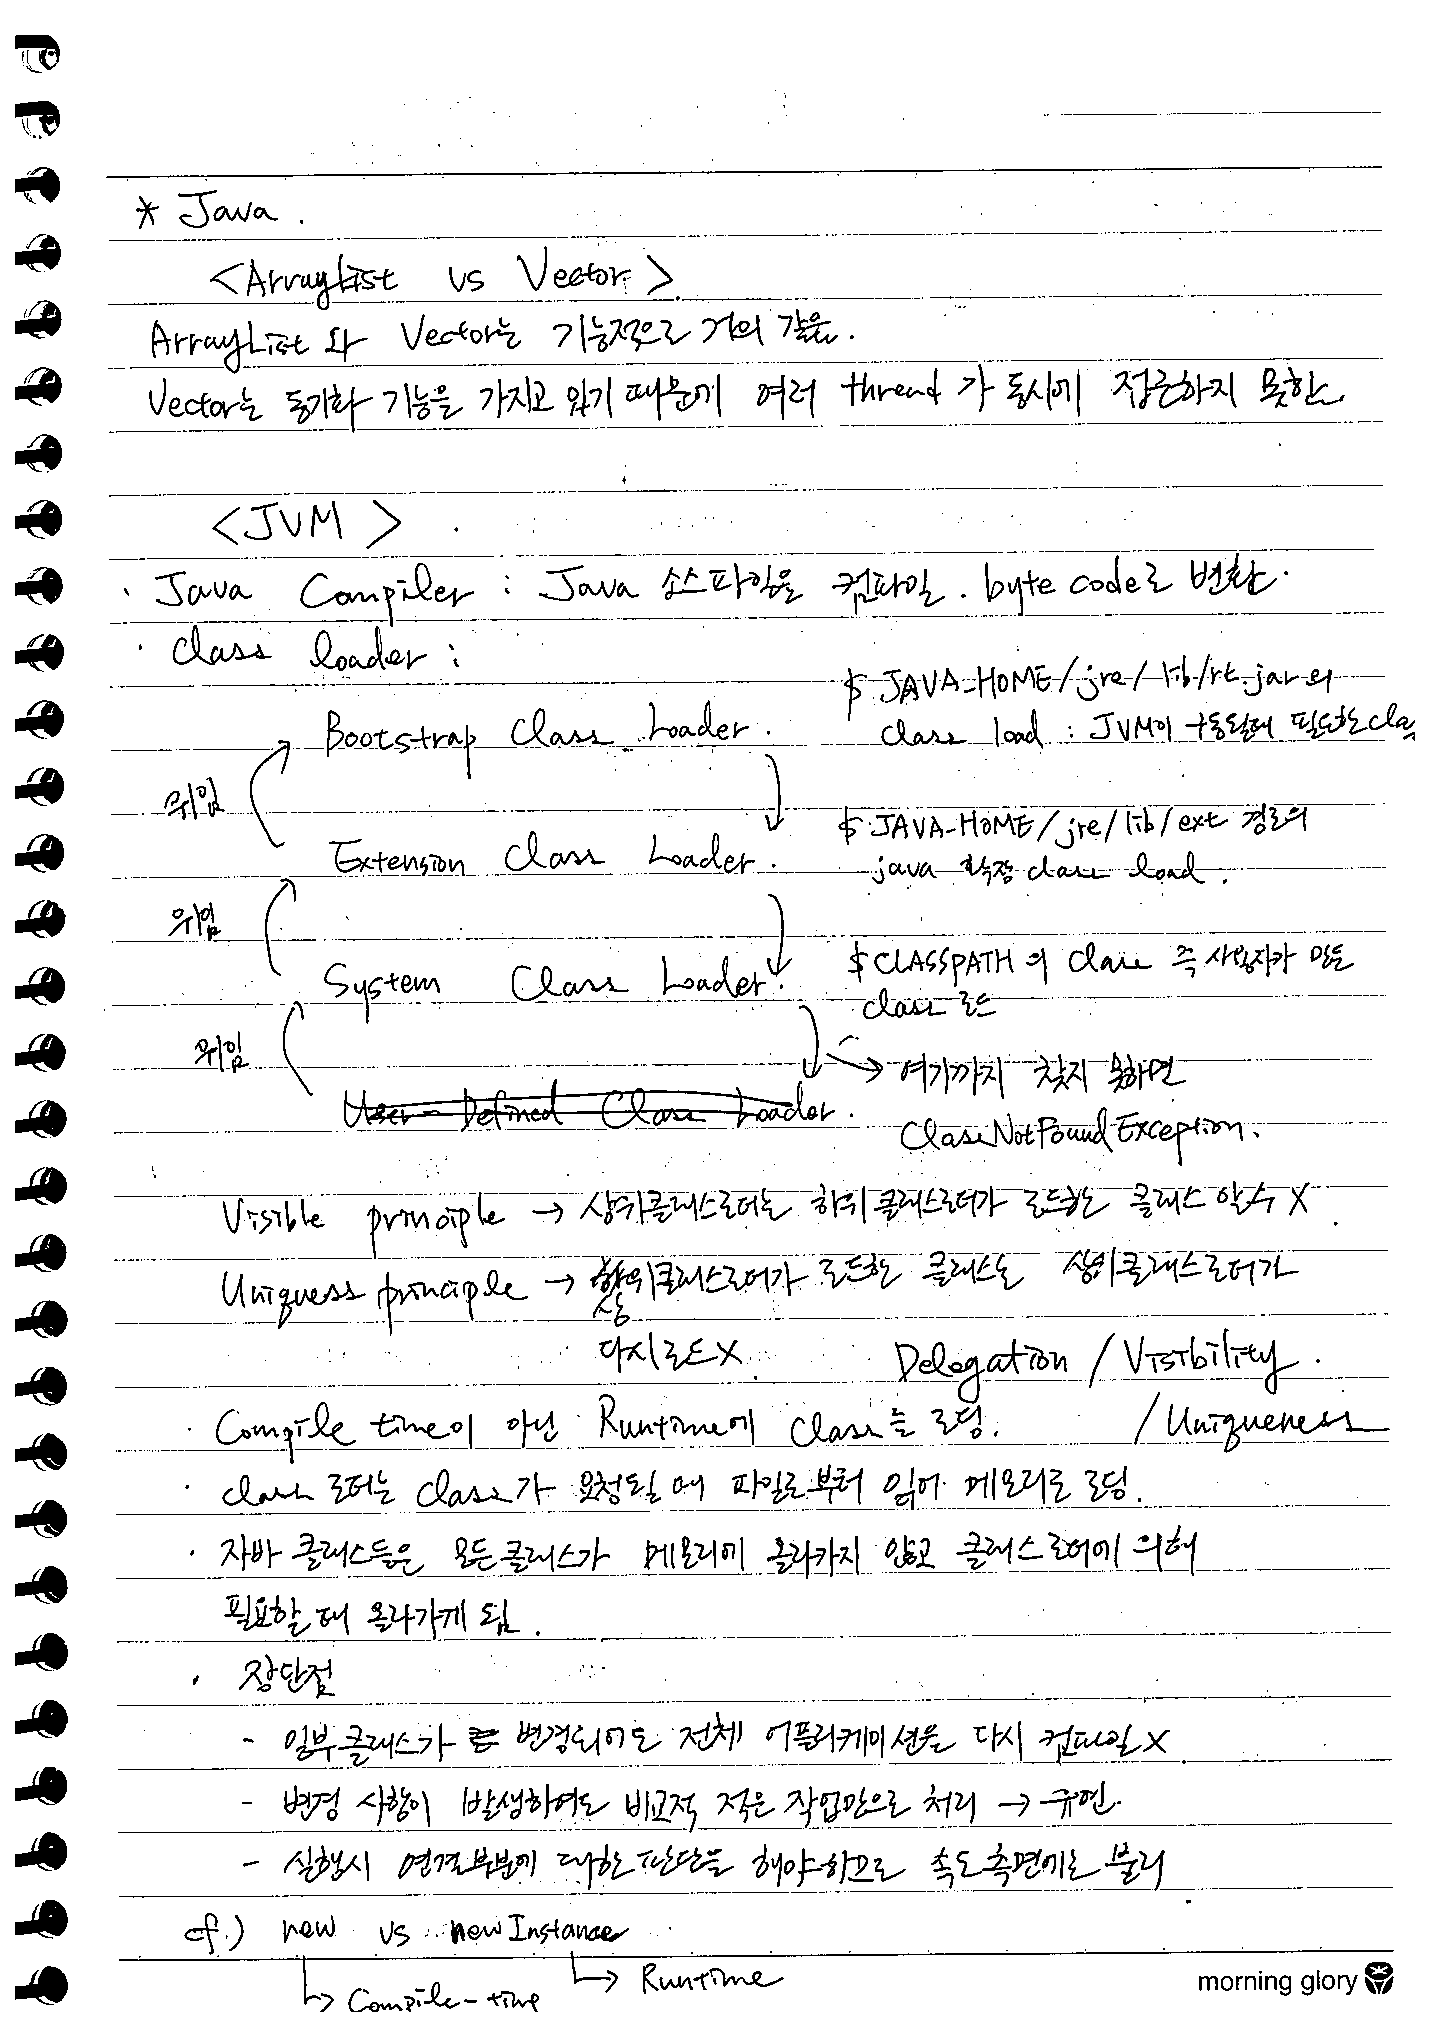 * Java.
<ArrayList vs Vector>
ArrayList 와 Vector는 기능적으로 거의 같음.
Vector는 동기화 기능을 가지고 있기 때문에 여러 thread 가 동시에 접근하지 못함.
<JVM>
· Java Compiler : Java 소스파일을 컴파일. byte code로 변환.
· class loader :
$JAVA_HOME/jre/lib/rt.jar의
Bootstrap Class Loader.
class load : JVM이 구동될때 필요한 clas
위임
$JAVA_HOME/jre/lib/ext 경로의
Extension Class Loader.
java 확장 class load.
위임
$CLASSPATH 의 class 즉 사용자가 만든
System Class Loader.
class 로드
위임
→ 여기까지 찾지 못하면
User-Defined Class Loader.
ClassNotFoundException.
Visible principle → 상위클래스로더는 하위클래스로더가 로드하는 클래스 알수 X
Uniquess principle → 하위클래스로더가 로드한 클래스는 상위클래스로더가
상
다시 로드 X
Delegation / Visibility.
/ Uniqueness
· Compile time이 아닌 Runtime에 class를 로딩.
· class 로더는 class가 요청될 때 파일로부터 읽어 메모리로 로딩.
· 자바 클래스들은 모든클래스가 메모리에 올라가지 않고 클래스로더에 의해
필요할 때 올라가게 됨.
· 장단점
- 일부클래스가 변경되어도 전체 어플리케이션을 다시 컴파일 X
- 변경 사항이 발생하여도 비교적 적은 작업만으로 처리 → 유연.
- 실행시 연결부분에 대한 판단을 해야하므로 속도측면에는 불리
cf.) new vs newInstance
→ Runtime
→ Compile-time
morning glory